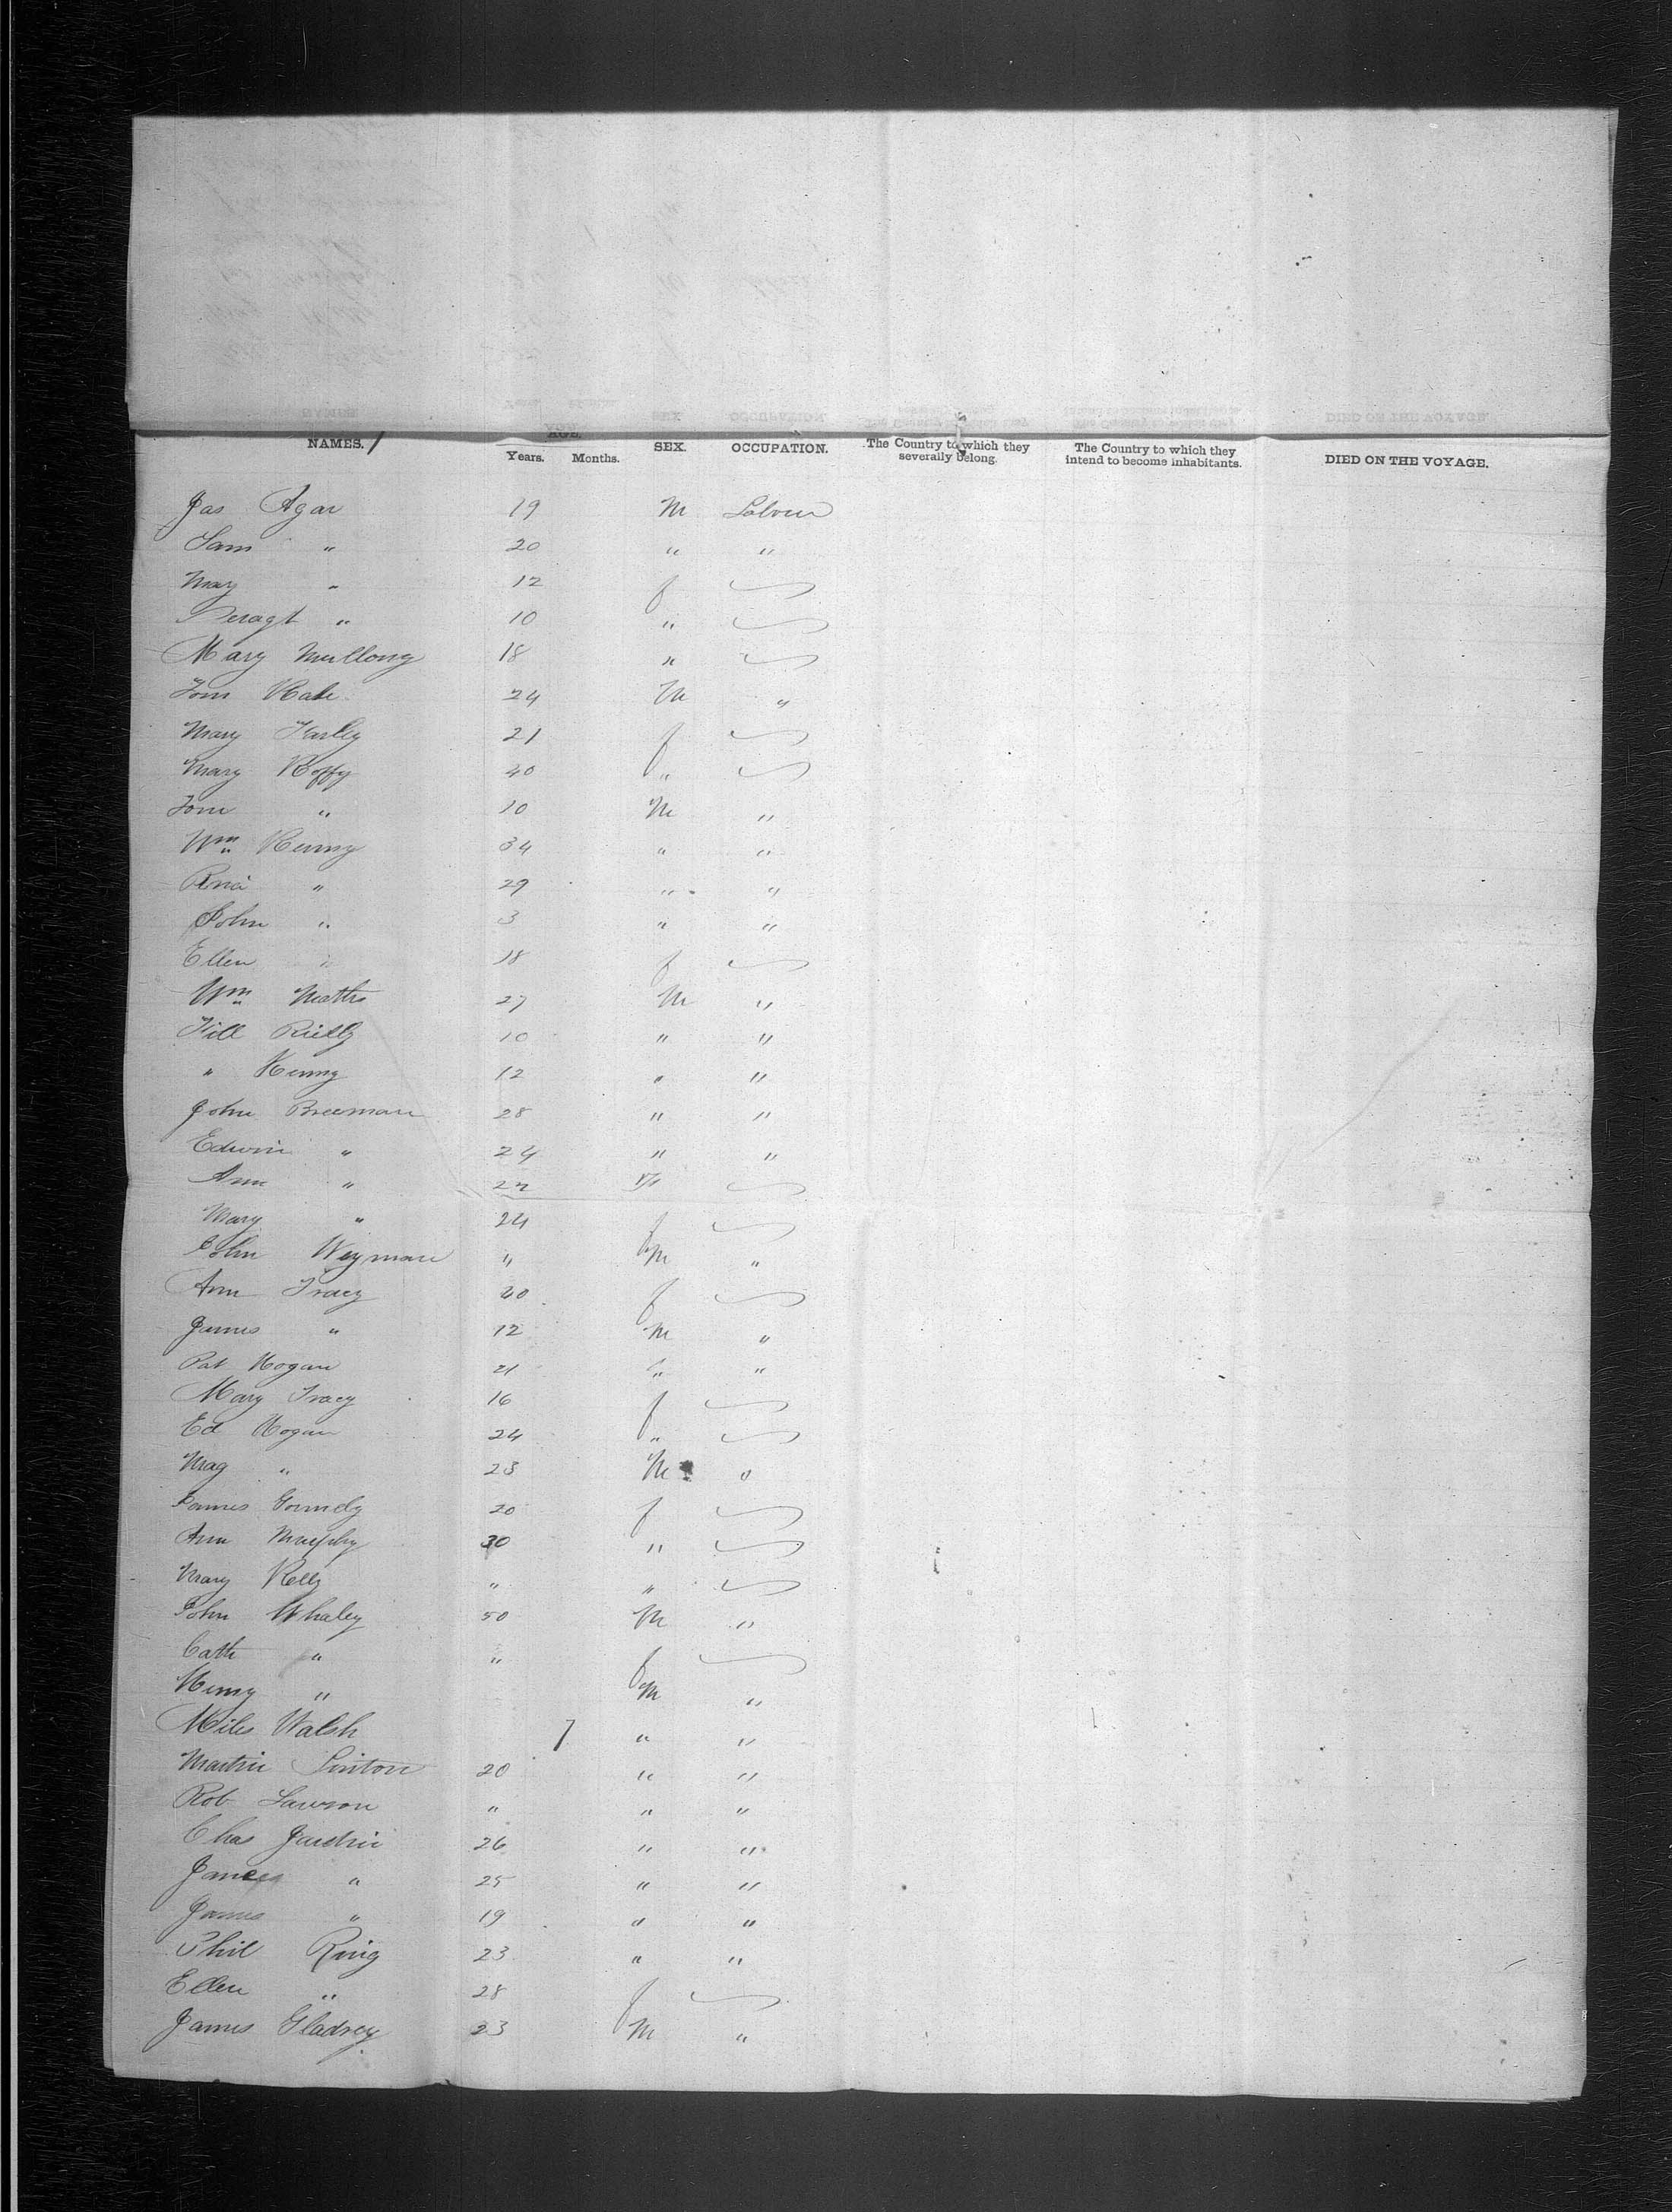 NAMES. AGE. Years. Months. SEX. OCCUPATION. The Country to which they severally belong The Country to which they intend to become inhabitants. DIED ON THE VOYAGE.
Jas Agar 19 M Labour
Sam " 20 " "
May " 12 f
10 "
Mary Mullony 18 "
Tom 24 M "
Mary Farley 21 f
Mary 40 "
Tom " 10 M "
Wm Kenny 34 " "
" 29 " "
John " 3 " "
Ellen " 18 f
Wm 27 M "
Reilly 10 " "
" Kenny 12 " "
John Breeman 28 " "
Edwin " 24 " "
Ann "
Mary " 24 f
John Weyman " M "
Ann Tracy 40 f
James " 12 M "
Pat Hogan 21 " "
Mary Tracy 16 f
Ed Hogan 24 "
Mag " 23 M "
James Gormely 20 f
Ann Murphy 30 "
Mary Kelly " "
John Whaley 50 M "
Cath " " f
Henry " M "
Miles Walsh 7 " "
Martin Linton 20 " "
Rob Lawson " " "
Chas 26 " "
James " 25 " "
James " 19 " "
Phil Ring 23 " "
Ellen " 28 f
James Gladrey 23 M "